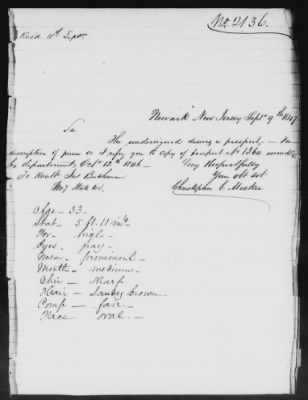 No. 2136.
Rec'd 11th Sept.
Newark New Jersey Sept 9th 1847
Sir
The undersigned desires a passport, - for
description of person so I refer you to copy of passport No 1360 issued
by department, Oct. 12th 1846 -
Very Respectfully
Your obt svt
Christopher C. Meeker
Age - 33 -
Stat - 5 ft. 11 in's
For - high -
Eyes - gray -
Nose - prominent -
Mouth - medium -
Chin - sharp
Hair - Sandy brown
Comp - fair -
Face oval -